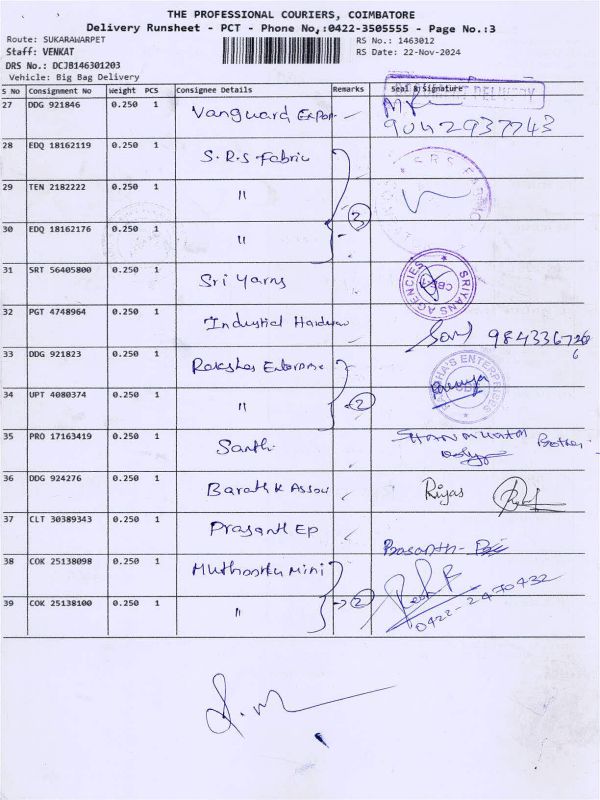 THE PROFESSIONAL COURIERS, COIMBATORE
Delivery Runsheet - PCT - Phone No.:0422-3505555 - Page No.:3
Route: SUKARAWARPET RS No.: 1463012
Staff: VENKAT RS Date: 22-Nov-2024
DRS No.: DCJB146301203
Vehicle: Big Bag Delivery
S No Consignment No Weight PCS Consignee Details Remarks Seal & Signature
27 DDG 921846 0.250 1 Vanguard Expor
DELIVERY
9042937743
28 EDQ 18162119 0.250 1 S.R.S Fabric
29 TEN 2182222 0.250 1 "
3
30 EDQ 18162176 0.250 1 "
31 SRT 56405800 0.250 1 Sri Yarns SRIYANS AGENCIES CBE-1
32 PGT 4748964 0.250 1 Industrial
33 DDG 921823 0.250 1 ENTERPRISES
34 UPT 4080374 0.250 1 " 2
35 PRO 17163419 0.250 1 Santhi
36 DDG 924276 0.250 1 Barath K Assou Riyas
37 CLT 30389343 0.250 1 Prasanth Ep Prasanth
38 COK 25138098 0.250 1 Muthoottu Mini
39 COK 25138100 0.250 1 " 2 0422-2470432